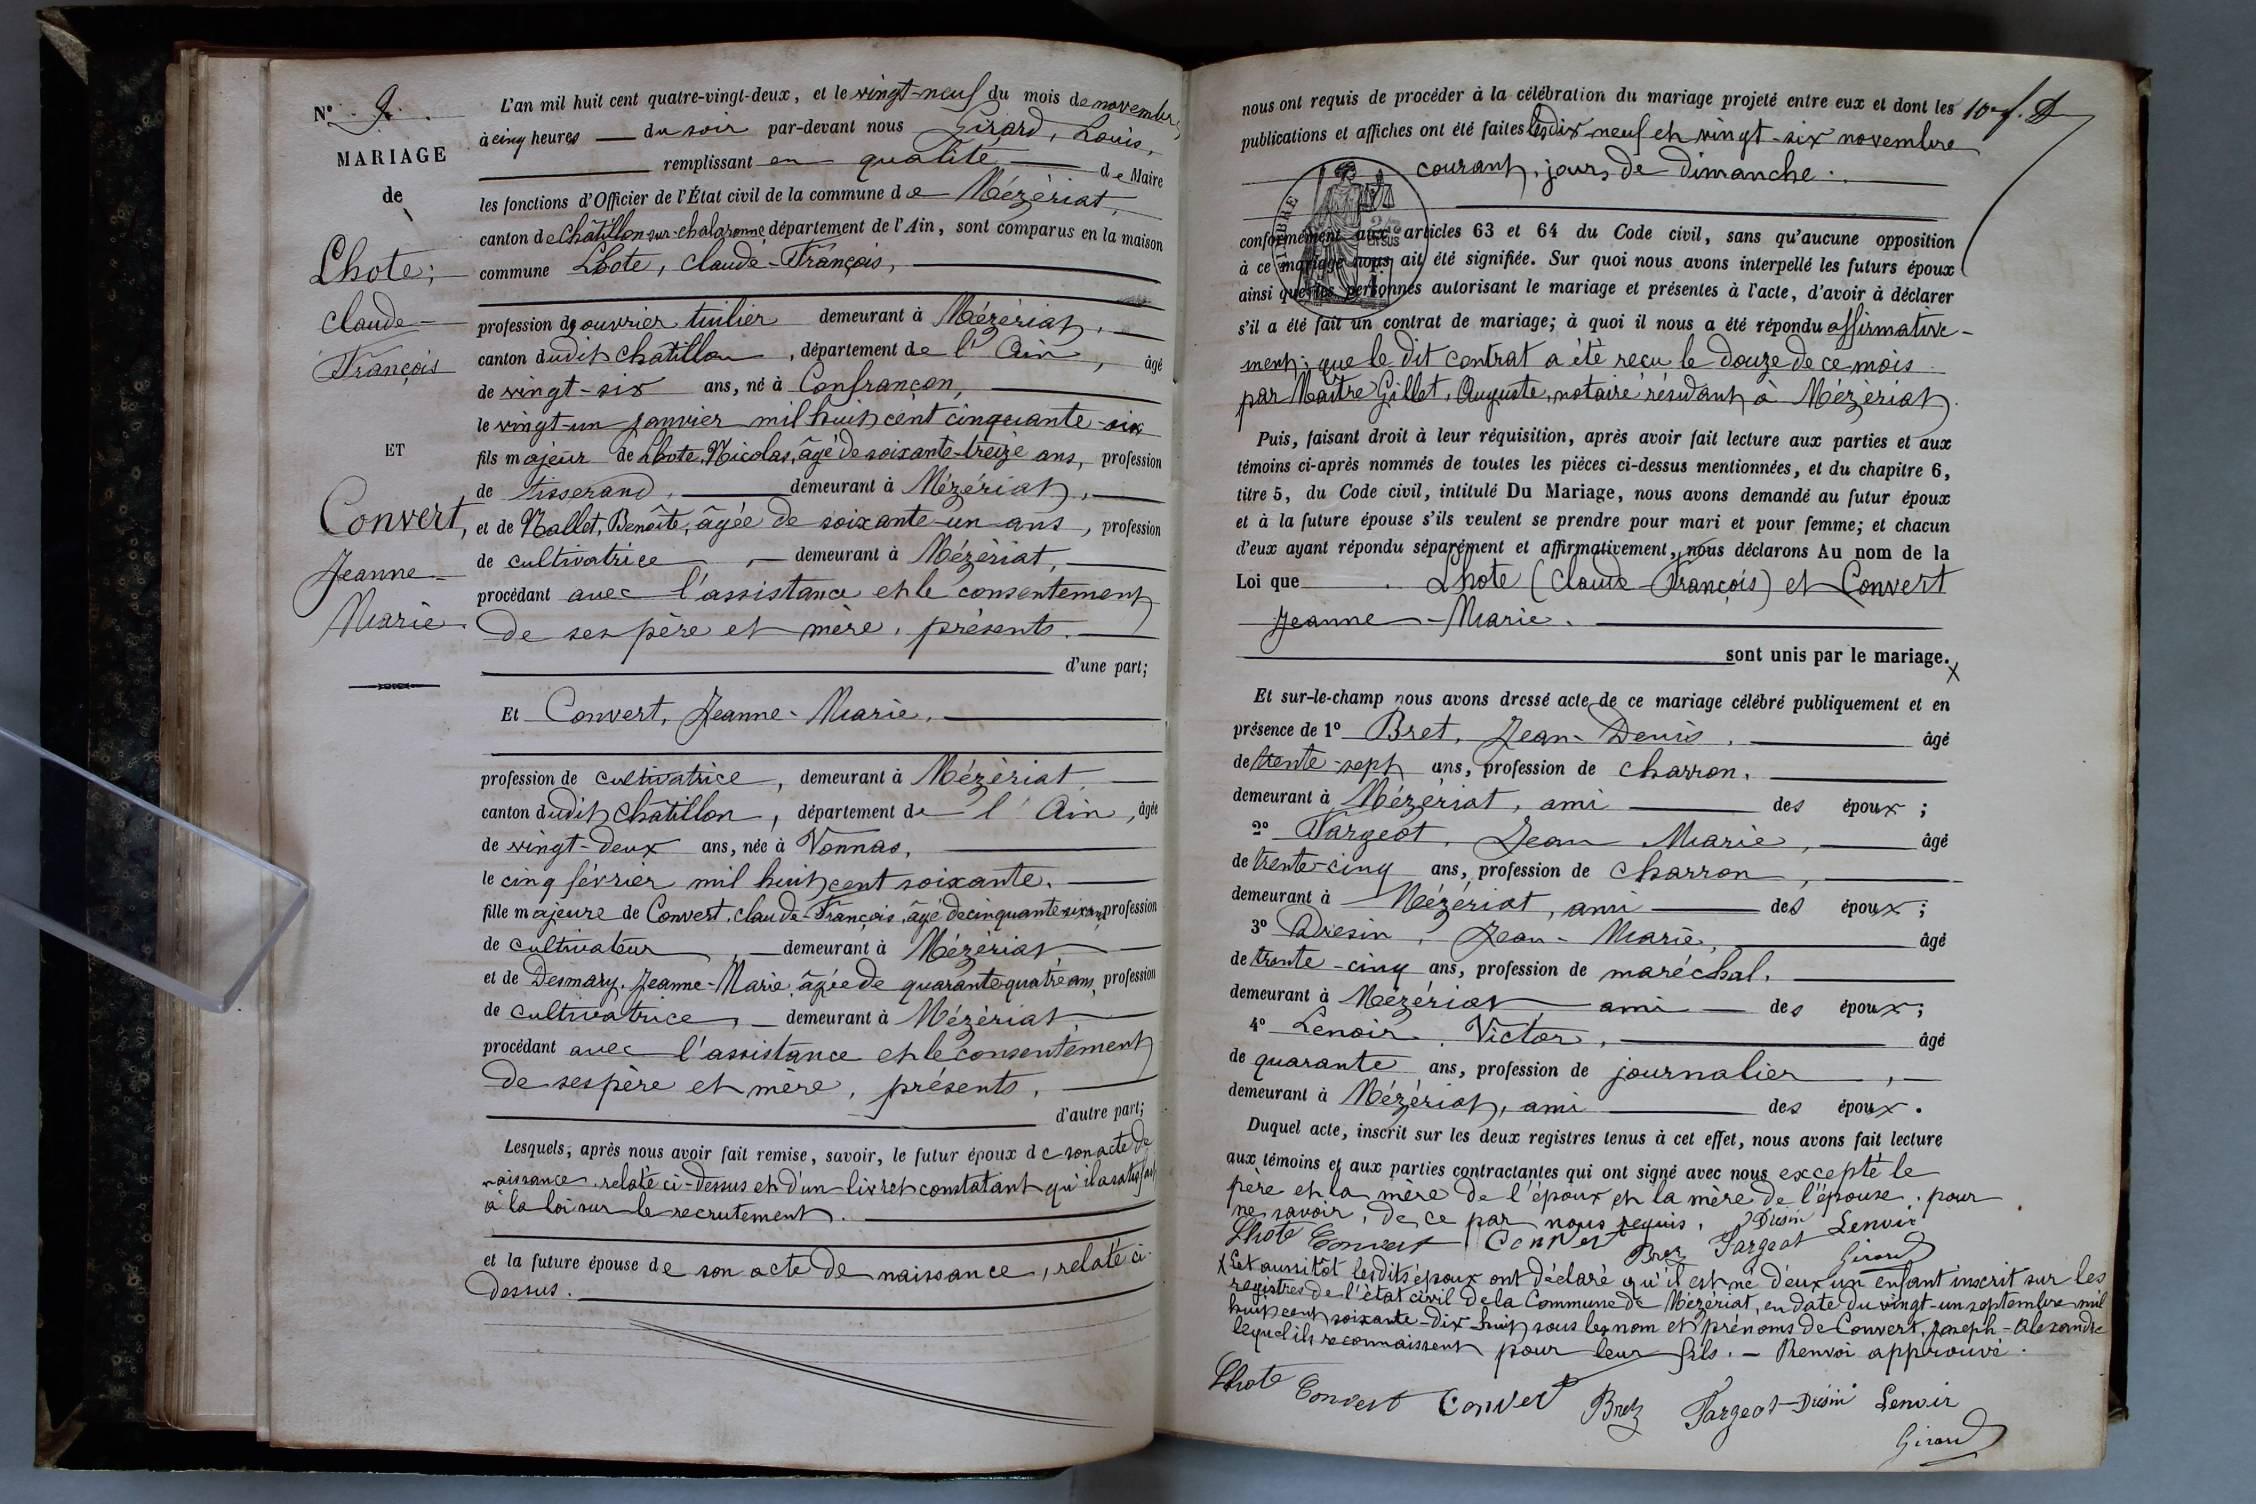 N° 9.
MARIAGE
de
Lhote,
Claude-
François
ET
Convert,
Jeanne-
Marie.
L'an mil huit cent quatre-vingt-deux, et le vingt-neuf du mois de novembre,
à cinq heures du soir par-devant nous Girard, Louis,
remplissant en qualité de Maire
les fonctions d'Officier de l'État civil de la commune de Mézériat,
canton de Châtillon-sur-chalaronne département de l'Ain, sont comparus en la maison
commune Lhote, Claude-François,
profession de ouvrier tuilier demeurant à Mézériat,
canton dudit Châtillon, département de l'Ain, âgé
de vingt-six ans, né à Confrançon,
le vingt-un janvier mil huit cent cinquante-six
fils majeur de Lhote, Nicolas, âgé de soixante-treize ans, profession
de tisserand, demeurant à Mézériat,
et de Mallet, Benoîte, âgée de soixante-un ans, profession
de cultivatrice, demeurant à Mézériat,
procédant avec l'assistance et le consentement
de ses père et mère, présents.
d'une part;
Et Convert, Jeanne-Marie,
profession de cultivatrice, demeurant à Mézériat
canton dudit Châtillon, département de l'Ain, âgée
de vingt-deux ans, née à Vonnas,
le cinq février mil huit cent soixante,
fille majeure de Convert, Claude-François, âgé de cinquante-six ans, profession
de cultivateur, demeurant à Mézériat
et de Desmary, Jeanne-Marie, âgée de quarante-quatre ans, profession
de cultivatrice, demeurant à Mézériat
procédant avec l'assistance et le consentement
de ses père et mère, présents,
d'autre part;
Lesquels, après nous avoir fait remise, savoir, le futur époux de son acte de
naissance, relaté ci-dessus et d'un livret constatant qu'il a satisfait
à la loi sur le recrutement.
et la future épouse de son acte de naissance, relaté ci-
dessus.
nous ont requis de procéder à la célébration du mariage projeté entre eux et dont les
publications et affiches ont été faites les dix neuf et vingt-six novembre
courant, jours de dimanche.
conformément aux articles 63 et 64 du Code civil, sans qu'aucune opposition
à ce mariage nous ait été signifiée. Sur quoi nous avons interpellé les futurs époux
ainsi que les personnes autorisant le mariage et présentes à l'acte, d'avoir à déclarer
s'il a été fait un contrat de mariage; à quoi il nous a été répondu affirmative-
ment; que le dit contrat a été reçu le douze de ce mois
par Maître Gillet, Auguste, notaire résidant à Mézériat.
Puis, faisant droit à leur réquisition, après avoir fait lecture aux parties et aux
témoins ci-après nommés de toutes les pièces ci-dessus mentionnées, et du chapitre 6,
titre 5, du Code civil, intitulé Du Mariage, nous avons demandé au futur époux
et à la future épouse s'ils veulent se prendre pour mari et pour femme; et chacun
d'eux ayant répondu séparément et affirmativement, nous déclarons Au nom de la
Loi que Lhote (Claude-François) et Convert
Jeanne-Marie.
sont unis par le mariage. x
Et sur-le-champ nous avons dressé acte de ce mariage célébré publiquement et en
présence de 1° Bret, Jean-Denis, âgé
de trente-sept ans, profession de charron,
demeurant à Mézériat, ami des époux;
2° Fargeot, Jean Marie, âgé
de trente-cinq ans, profession de charron,
demeurant à Mézériat, ami des époux;
3° Drésin, Jean-Marie, âgé
de trente-cinq ans, profession de maréchal,
demeurant à Mézériat, ami des époux;
4° Lenoir, Victor, âgé
de quarante ans, profession de journalier,
demeurant à Mézériat, ami des époux.
Duquel acte, inscrit sur les deux registres tenus à cet effet, nous avons fait lecture
aux témoins et aux parties contractantes qui ont signé avec nous excepté le
père et la mère de l'époux et la mère de l'épouse, pour
ne savoir, de ce par nous requis.
Lhote Convert Convert Bret Fargeot Drésin Lenoir
Girard
x Et aussitôt lesdits époux ont déclaré qu'il est né d'eux un enfant inscrit sur les
registres de l'état civil de la Commune de Mézériat, en date du vingt-un septembre mil
huit cent soixante-dix-huit sous les nom et prénoms de Convert, Joseph-Alexandre
lequel ils reconnaissent pour leur fils. - Renvoi approuvé.
Lhote Convert Convert Bret Fargeot Drésin Lenoir
Girard